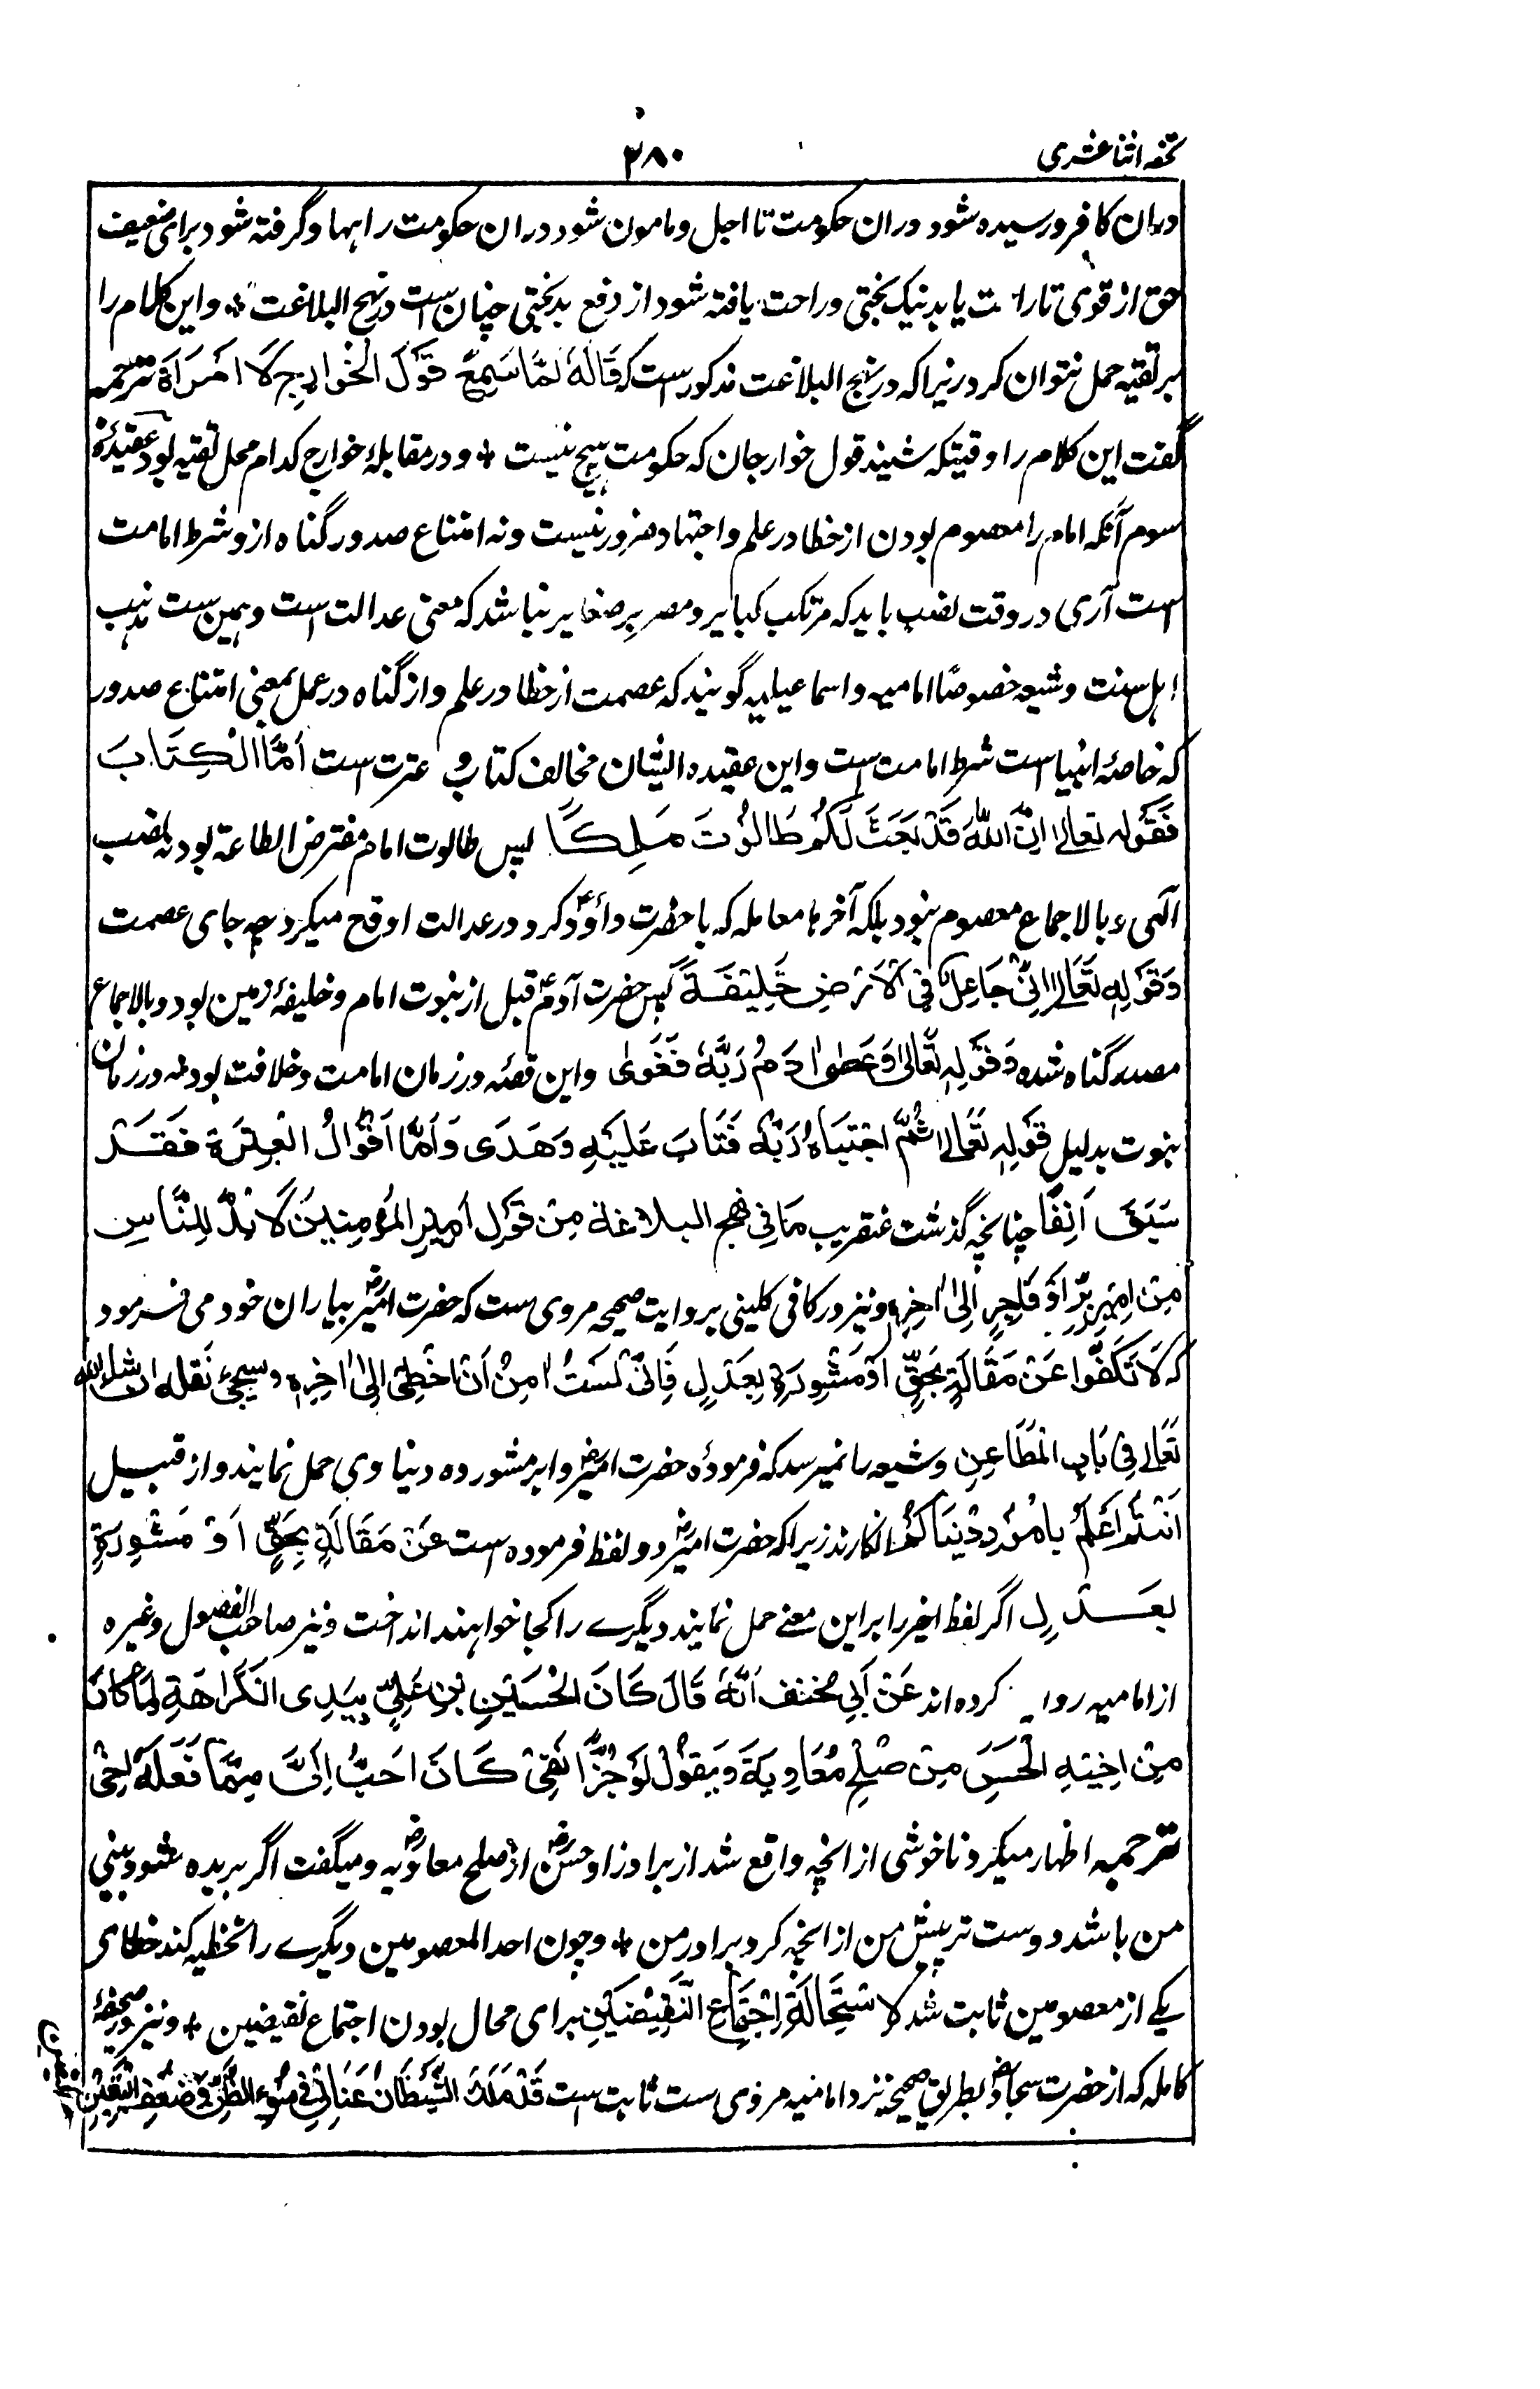 تحفہ اثنا عشری
۲۸۰
دران کافر و رسیده شود دران حکومت تا اجل و مامون شود دران حکومت راہہا و گرفته شود برای ضعیف
حق از قوی تا راحت یابد نیک بختی و راحت یافته شود از دفع بدبختی چنان ست در نہج البلاغت ٭ و این کلام را
بر تقیه حمل نتوان کرد زیرا که در نہج البلاغت مذکور ست که قَالَهٗ لَمَّا سَمِعَ قَوْلَ الْخَوَارِجِ لَا اَمْرَاَةَ ترجمه
گفت این کلام را وقتیکه شنید قول خوارجان که حکومت ہیچ نیست ٭ و در مقابلۂ خوارج کدام محل تقیه بود عقیدۂ
سوم آنکه امام را معصوم بودن از خطا در علم و اجتہاد ضرور نیست و نه امتناع صدور گناه ازو شرط امامت
است آری در وقت نصب باید که مرتکب کبایر و مصر بر صغایر نباشد که معنی عدالت است و ہمین ست مذہب
اہل سنت و شیعه خصوصًا امامیه و اسماعیلیه گویند که عصمت از خطا در علم و از گناه در عمل بمعنی امتناع صدور
که خاصۂ انبیا است شرط امامت است و این عقیده ایشان مخالف کتاب و عترت است اَمَّا الْكِتَابَ
فَقَوْلہ تعالٰی اِنَّ اللهَ قَدْ بَعَثَ لَكُمْ طَالُوْتَ مَلِكًا پس طالوت امام مفترض الطاعة بود به نصب
الٰہی و بالاجماع معصوم نبود بلکه آخرہا معامله که با حضرت داؤدؑ کرد در عدالت او قدح میکرد چه جای عصمت
وَقَوْلِهٖ تَعَالٰی اِنِّیْ جَاعِلٌ فِی الْاَرْضِ خَلِیْفَةً پس حضرت آدمؑ قبل از نبوت امام و خلیفۂ زمین بود و بالاجماع
مصدر گناه شده وَقَوْلِهٖ تَعَالٰی وَعَصٰی اٰدَمُ رَبَّهٗ فَغَوٰی و این قصه در زمان امامت و خلافت بود نه در زمان
نبوت بدلیل قَوْلِهٖ تَعَالٰی ثُمَّ اجْتَبَاهُ رَبُّهٗ فَتَابَ عَلَيْهِ وَهَدَى وَاَمَّا اَقْوَالُ الْعِتْرَةِ فَقَدْ
سَبَقَ اٰنِفًا چنانچه گذشت عنقریب مَا فِی نہج البلاغة مِنْ قَوْلِ اَمِيْرِ الْمُؤْمِنِيْنَ لَا بُدَّ لِلنَّاسِ
مِنْ اَمِيْرٍ بَرٍّ اَوْ فَاجِرٍ اِلٰی اٰخِرِهٖ و نیز در کافی کلینی بروایت صحیحه مروی ست که حضرت امیرؓ بیاران خود می فرمود
که لَا تَكُفُّوْا عَنْ مَقَالَةٍ بِحَقٍّ اَوْ مَشْوِرَةٍ بِعَدْلٍ فَاِنِّیْ لَسْتُ اٰمِنُ اَنْ اُخْطِئَ اِلٰی اٰخِرِهٖ وسیجئ نَقله ان شاء الله
تَعَالٰی فِی بَابِ الْمَطَاعِنِ و شیعه را نمیرسد که فرمودۂ حضرت امیرؓ را بر مشوره دنیاوی حمل نمایند و از قبیل
اَنْتُمْ اَعْلَمُ بِاُمُوْرِ دُنْيَاكُمْ انگارند زیرا که حضرت امیرؓ دو لفظ فرموده است عَنْ مَقَالَةٍ بِحَقٍّ اَوْ مَشْوِرَةٍ
بِعَدْلٍ اگر لفظ اخیر را بر این معنے حمل نمایند دیگرے را کجا خواہند انداخت و نیز صاحب الفصول و غیره
از امامیه روایت کرده اند عَنْ اَبِی مُخنف اَنَّهٗ قَالَ كَانَ الْحُسَيْنِ بْنِ عَلِیٍّ يُبْدِى الْكَرَاهَةَ لِمَا كَانَ
مِنْ اَخِيْهِ الْحَسَنِ مِنْ صُلْحِ مُعَاوِيَةَ وَيَقُوْلُ لَوْ جُزَّ اَنْفِیْ كَانَ اَحَبُّ اِلَیَّ مِمَّا فَعَلَهٗ اَخِیْ
ترجمه اظہار میکرد ناخوشی از انچه واقع شد از برادر او حسنؓ از صلح معاویهؓ و میگفت اگر بریده شود بینی
من باشد دوست تر پیش من از انچه کرد برادر من ٭ و چون احد المعصومین دیگرے را تخطیه کند خطای
یکے از معصومین ثابت شد لِاِسْتِحَالَةِ اِجْتِمَاعِ النَّقِيْضَيْنِ برای محال بودن اجتماع نقیضین ٭ و نیز در صحیفۂ
کامله که از حضرت سجادؓ بطریق صحیحه نزد امامیه مروی ست ثابت است قَدْ مَلَكَ الشَّيْطَانُ عَنَانِیْ فِیْ سُوْءِ الظَّنِّ وَ ضَعْفِ الْيَقِيْنِ